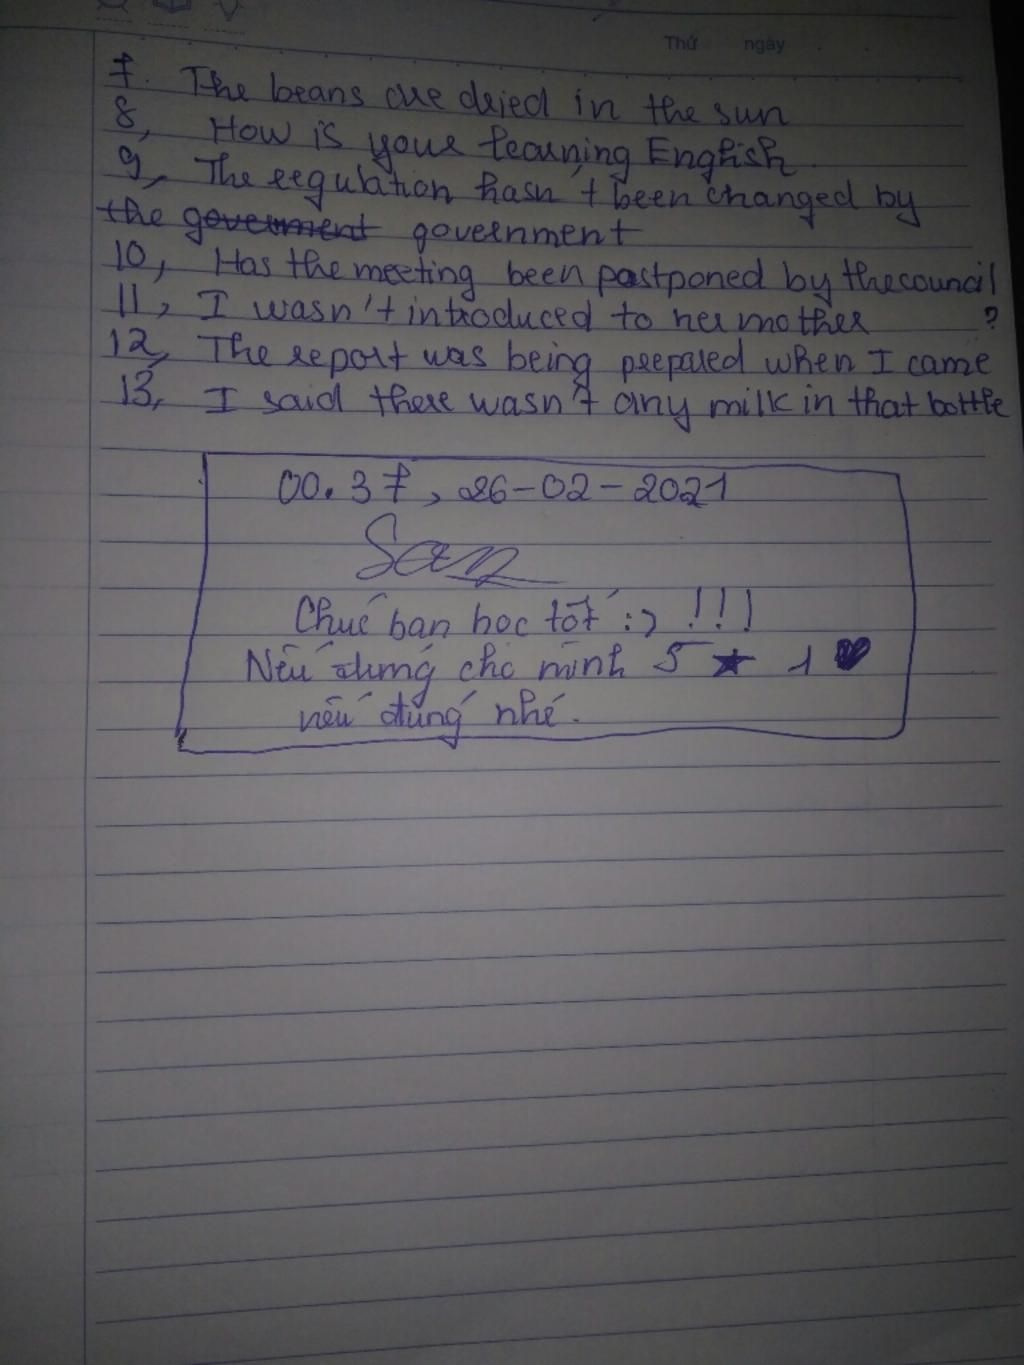 Thứ ngày
7. The beans are dried in the sun
8, How is your learning English
9, The regulation hasn't been changed by
the goverment government
10, Has the meeting been postponed by the council
11, I wasn't introduced to her mother ?
12, The report was being prepared when I came
13, I said there wasn't any milk in that bottle
00.37, 26-02-2021
San
Chúc bạn học tốt :) !!!
Nếu đúng cho mình 5 ★ 1 ♥
nếu đúng nhé.